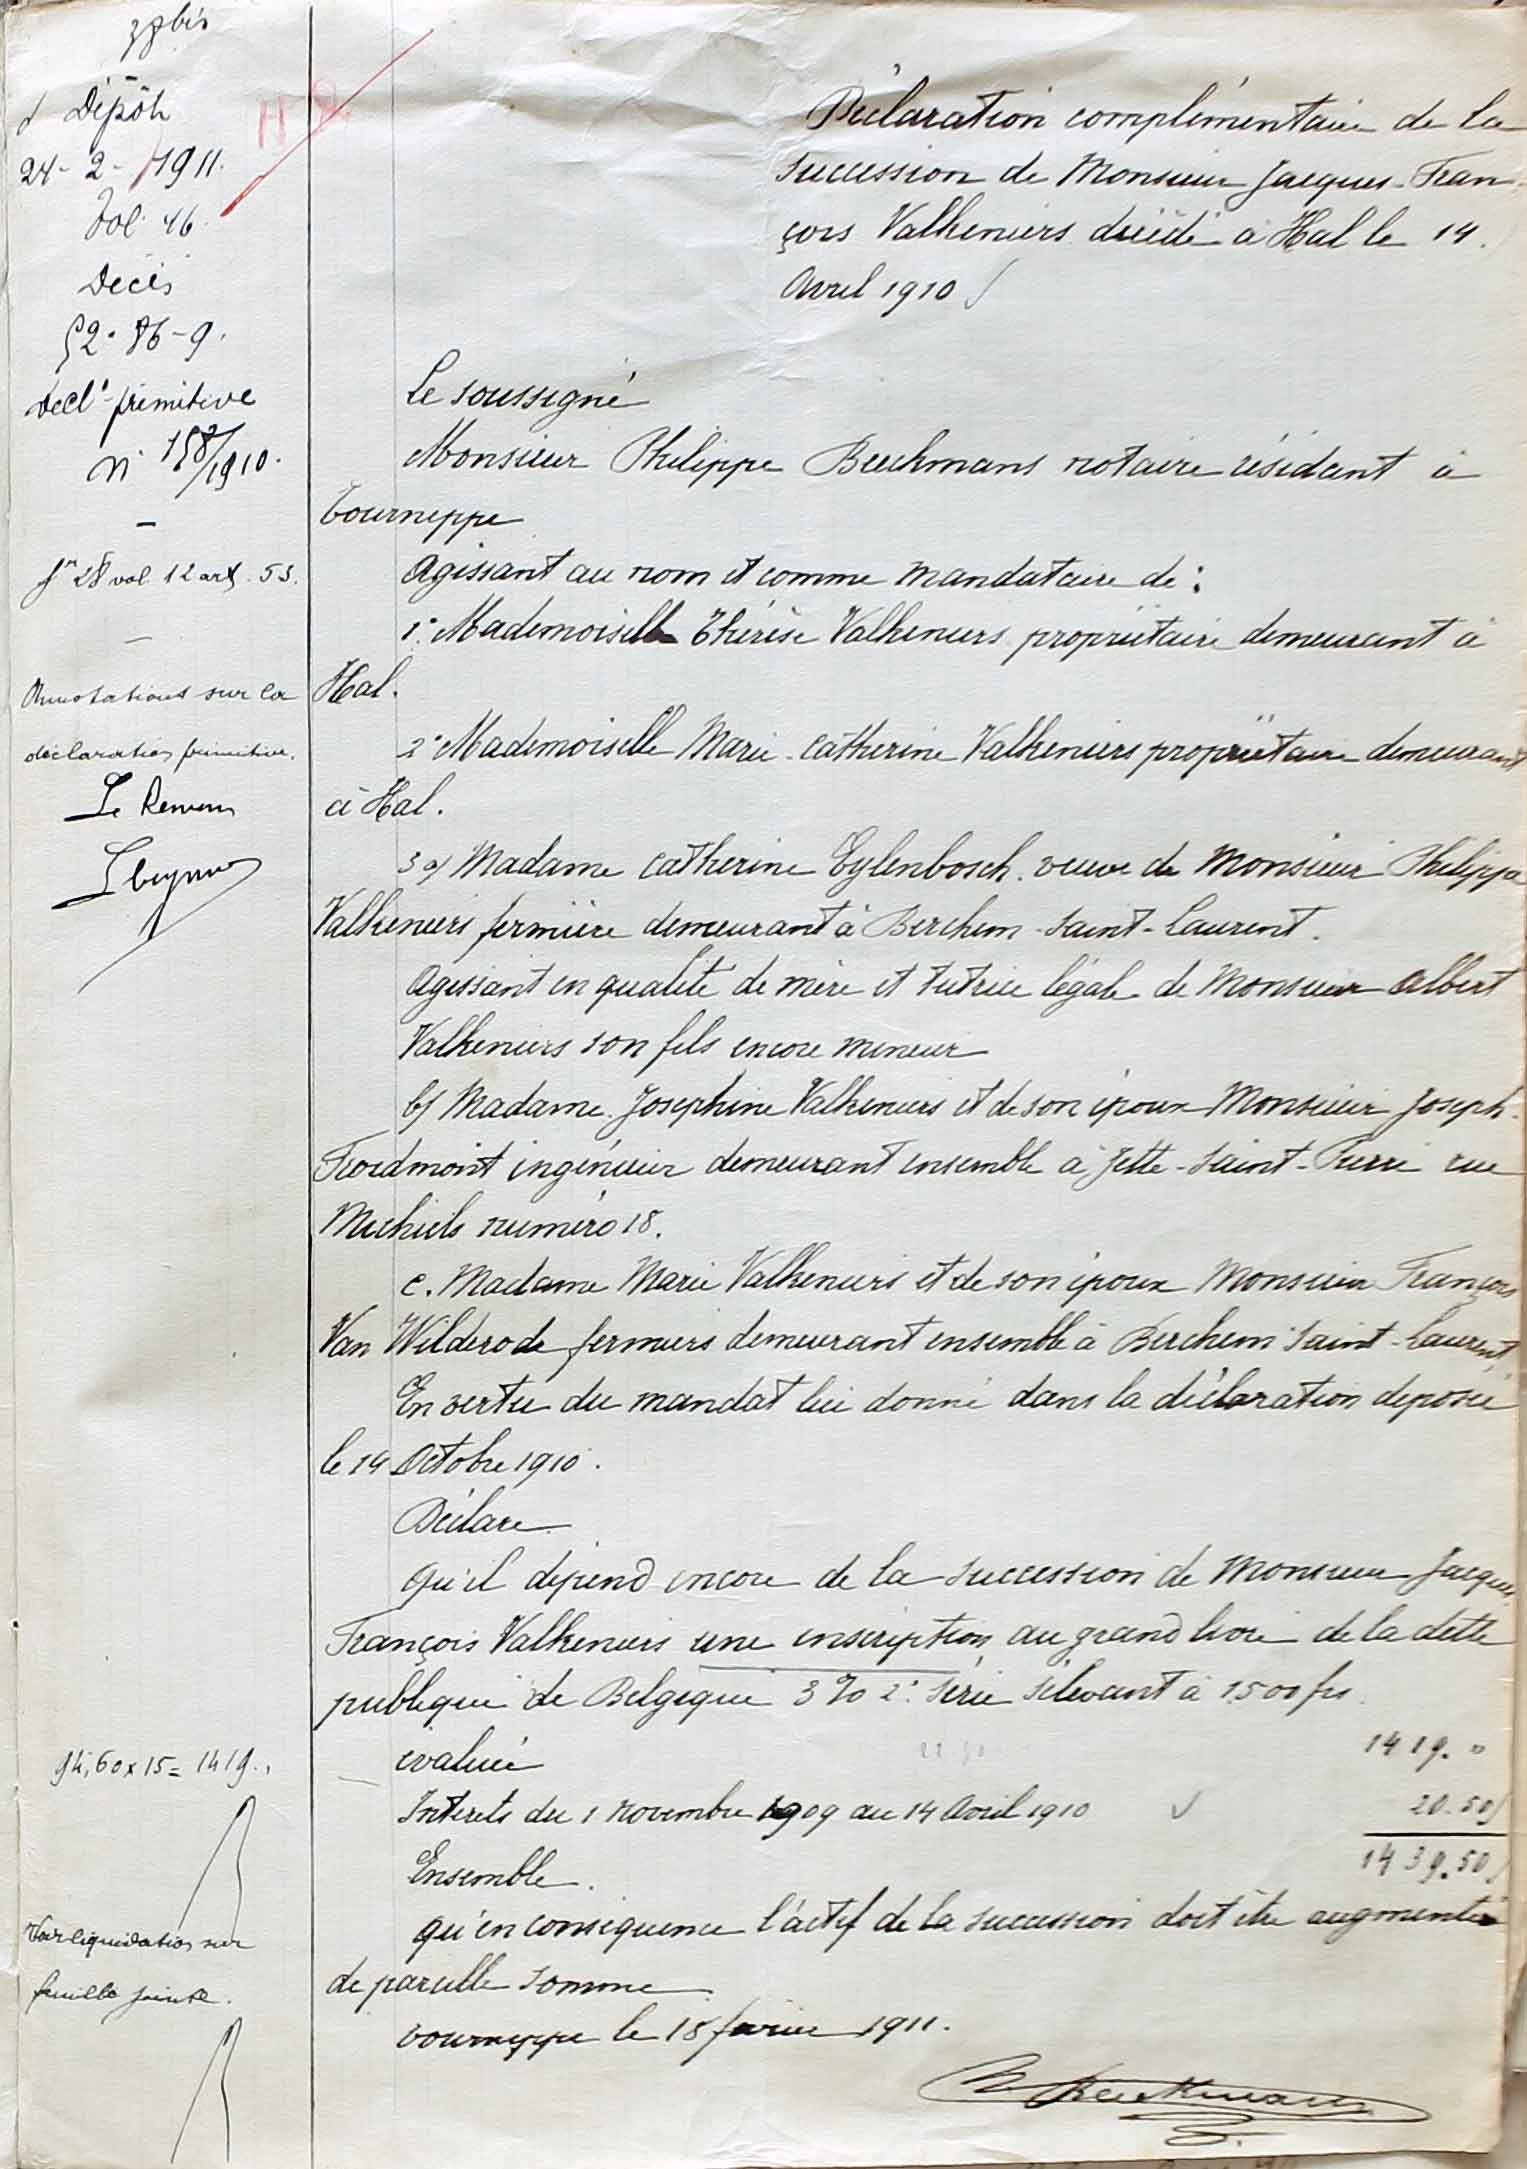 38bis
Dépôt
24-2-1911.
Vol. 46.
Décès
§2. 86-9.
Décl° primitive
N° 158/1910.
vol. 12 art. 53.
Annotations sur la
déclaration primitive.
Le Receveur
Déclaration complémentaire de la
succession de Monsieur Jacques-Fran-
çois Valkeniers décédé à Hal le 14
Avril 1910
Le soussigné
Monsieur Philippe Beeckmans notaire résidant à
Tourneppe
Agissant au nom et comme mandataire de:
1° Mademoiselle Thérèse Valkeniers propriétaire demeurant à
Hal.
2° Mademoiselle Marie-Catherine Valkeniers propriétaire demeurant
à Hal.
3 a/ Madame Catherine Eylenbosch veuve de Monsieur Philippe
Valkeniers fermière demeurant à Berchem-Saint-Laurent.
Agissant en qualité de mère et tutrice légale de Monsieur Albert
Valkeniers son fils encore mineur
b/ Madame Josephine Valkeniers et de son époux Monsieur Joseph
Froidmont ingénieur demeurant ensemble à Jette-Saint-Pierre rue
Michiels numéro 18.
c. Madame Marie Valkeniers et de son époux Monsieur François
Van Wilderode fermiers demeurant ensemble à Berchem Saint-Laurent,
En vertu du mandat lui donné dans la déclaration déposée
le 14 Octobre 1910.
Déclare
Qu'il dépend encore de la succession de Monsieur Jacques
François Valkeniers une inscription au grand livre de la dette
publique de Belgique 3% 2° Série s'élevant à 1500 frs
évaluée 1419. "
94,60 x 15 = 1419.,
Intérêts du 1 Novembre 1909 au 14 Avril 1910 20.50
Ensemble. 1439.50
qu'en conséquence l'actif de la succession doit être augmenté
de pareille somme
Tourneppe le 18 février 1911.
Voir liquidation sur
feuille jointe.
Beeckmans